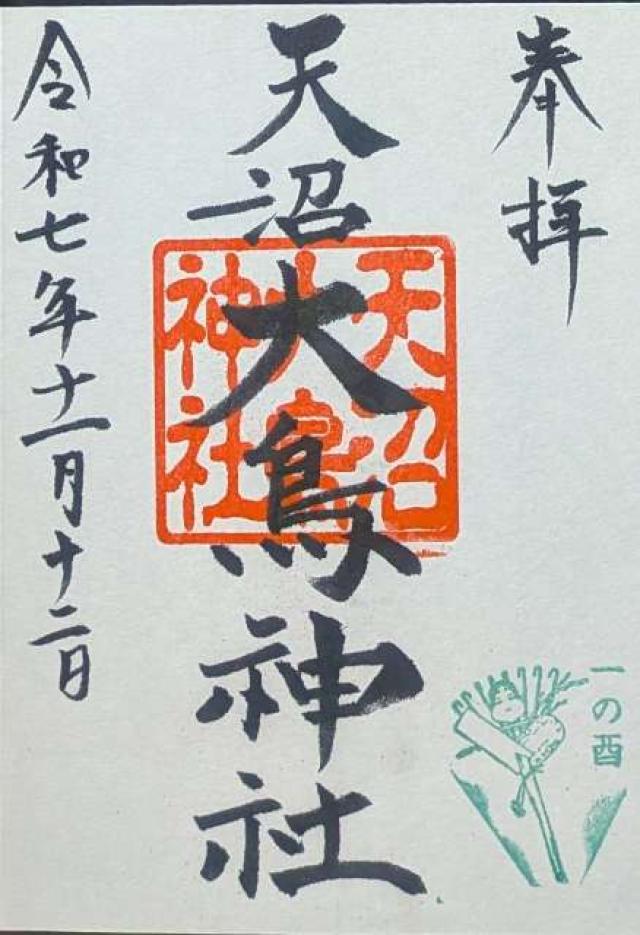 奉拝
天沼大鳥神社
天沼
大鳥
神社
令和七年十一月十二日
一の酉